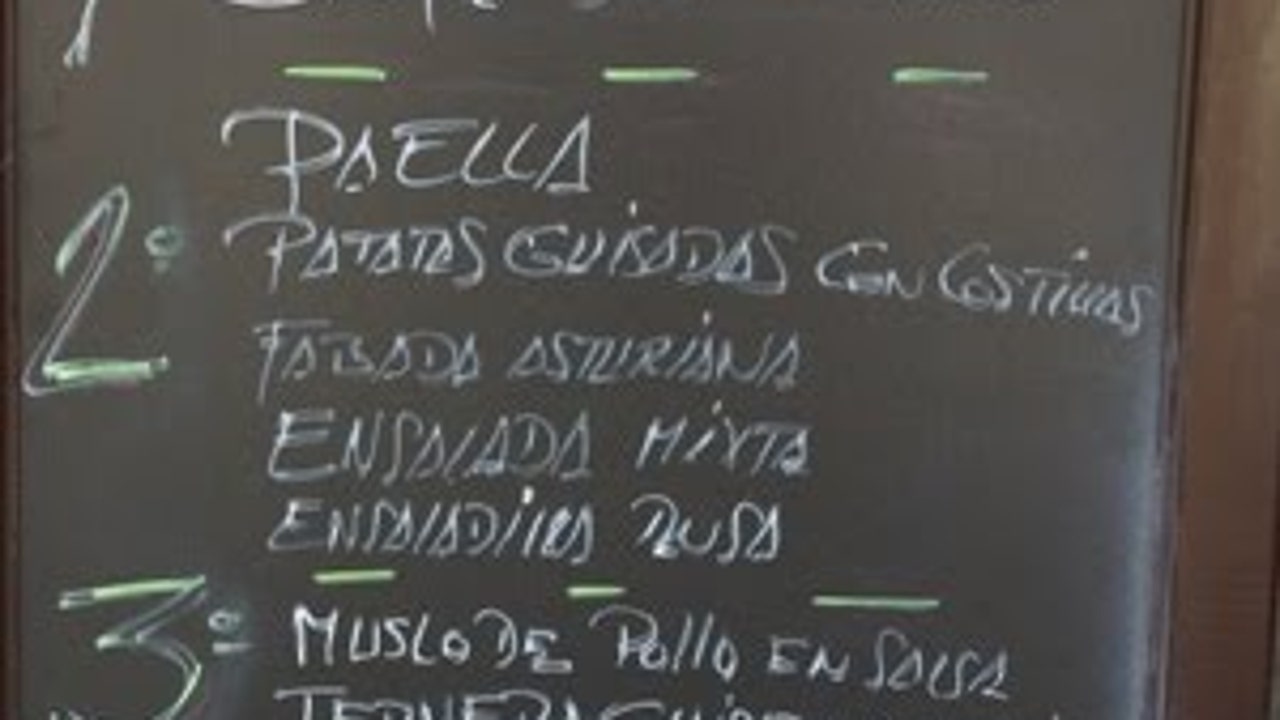 PAELLA
2º PATATAS GUISADAS CON COSTILLAS
FABADA ASTURIANA
ENSALADA MIXTA
ENSALADILLA RUSA
3º MUSLO DE POLLO EN SALSA
TERNERA